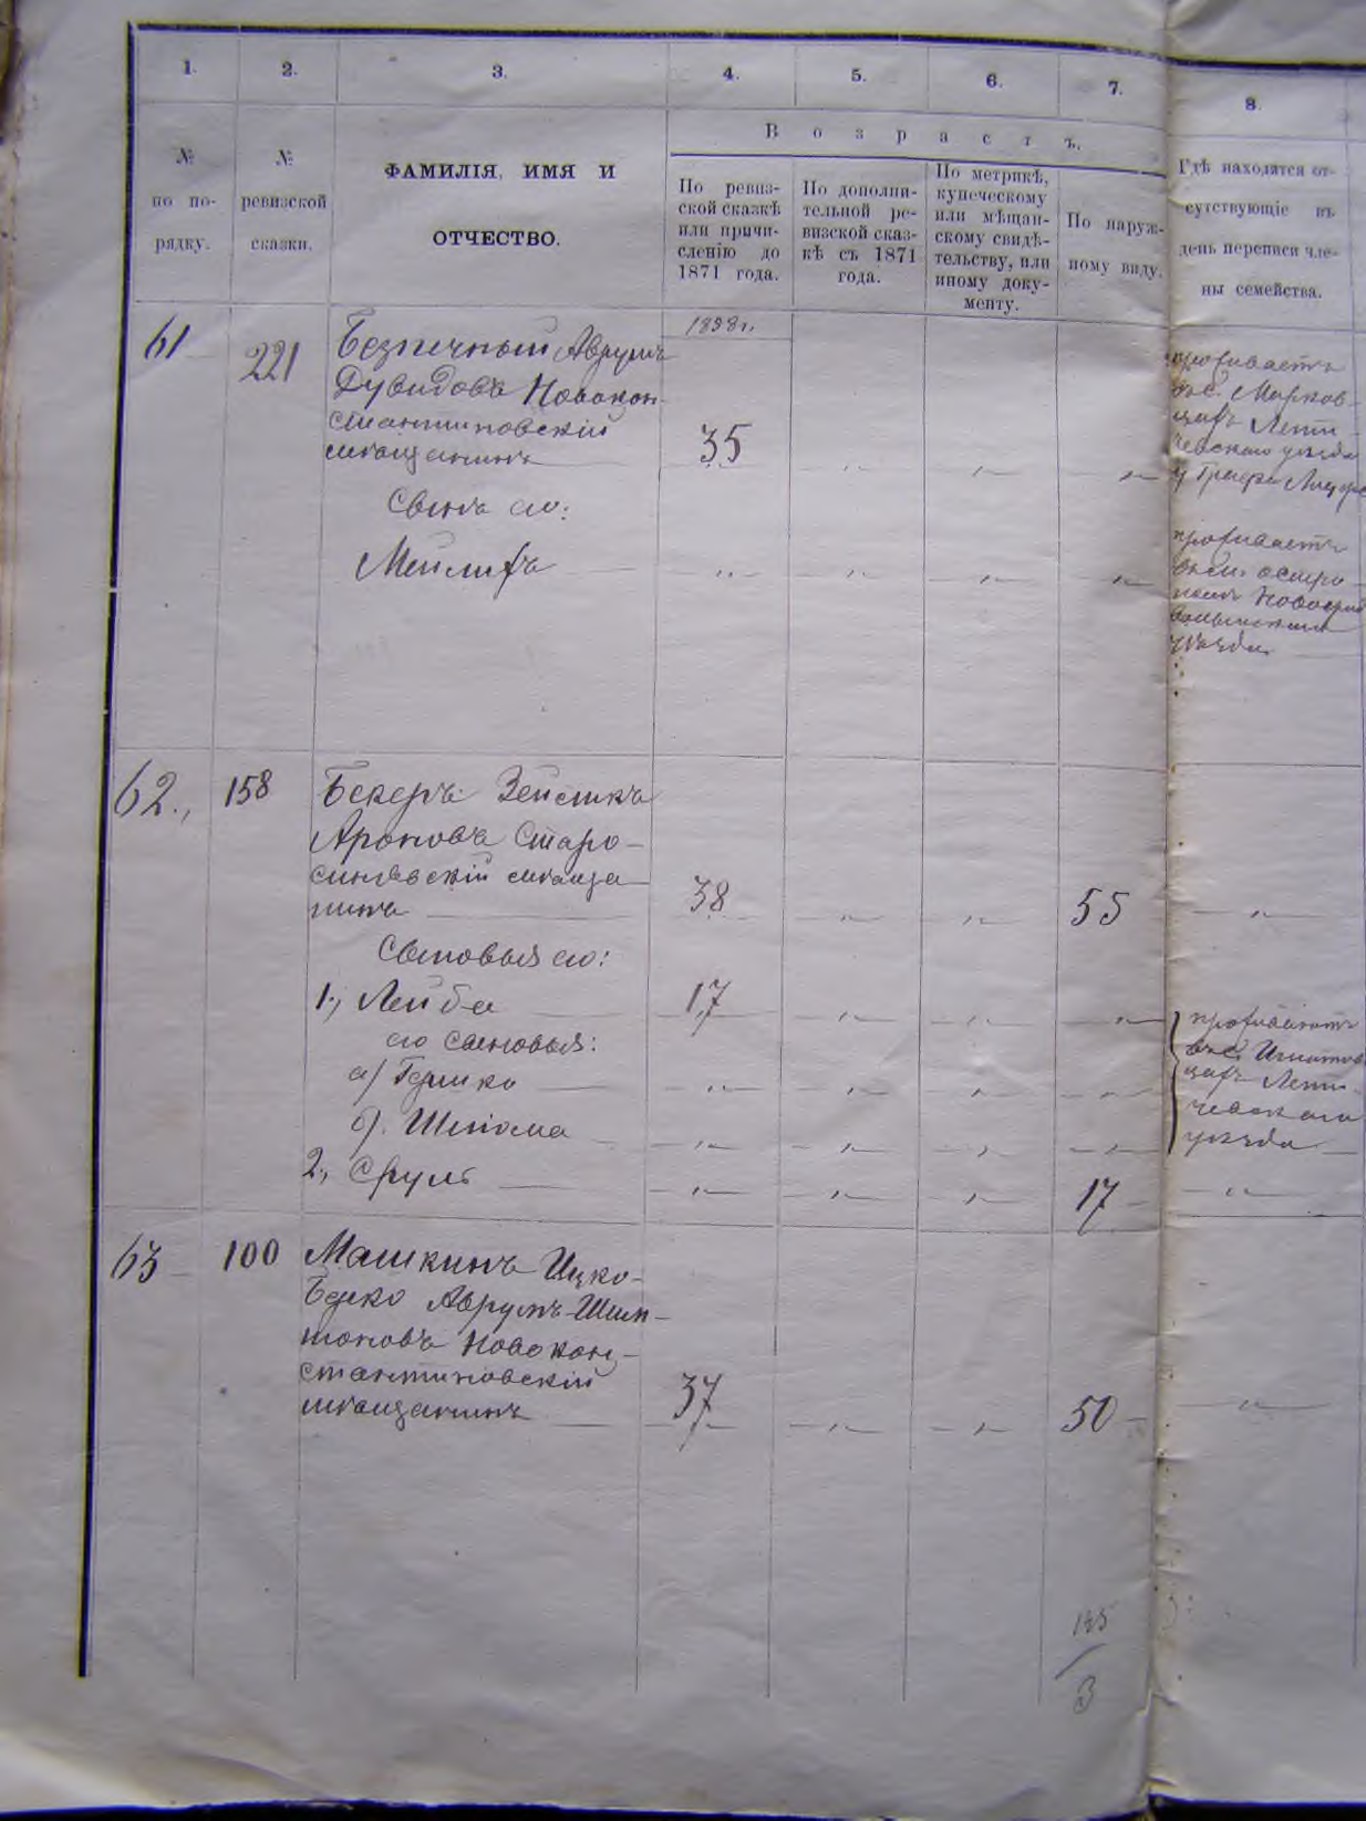 1. 2. 3. 4. 5. 6. 7. 8.
Возрастъ.
№ по по-рядку.
№ ревизской сказки.
ФАМИЛІЯ, ИМЯ И
ОТЧЕСТВО.
По ревиз-
ской сказкѣ
или причи-
сленію до
1871 года.
По дополни-
тельной ре-
визской сказ-
кѣ съ 1871
года.
По метрикѣ,
купеческому
или мѣщан-
скому свидѣ-
тельству, или
иному доку-
менту.
По наруж-
ному виду.
Гдѣ находятся от-
сутствующіе въ
день переписи чле-
ны семейства.
1858 г.
61 221 Безпечный Аврумъ
Дувидовъ Новокон-
стантиновскій
мѣщанинъ 35 " " "
проживаетъ
въ с. Марков-
цахъ Лети-
чевскаго уѣзда
у Графа
Сынъ его:
Мейлихъ " " " "
проживаетъ
въ м. Остро-
полѣ Новоград
волынскаго
уѣзда.
62., 158 Бекеръ Зейликъ
Ароновъ Старо-
синявскій мѣща-
нинъ 38 " " 55 "
Сыновья его:
1., Лейба 17 " " "
его сыновья:
а/ Гершко " " " "
б/. Шлiома " " " "
проживаютъ
въ с.
цахъ Лети-
чевскаго
уѣзда
2., Сруль " " " 17 "
63 100 Машкинъ Ицко-
Берко Аврумъ-Шим-
шоновъ Новокон-
стантиновскій
мѣщанинъ 37 " " 50 "
185
3